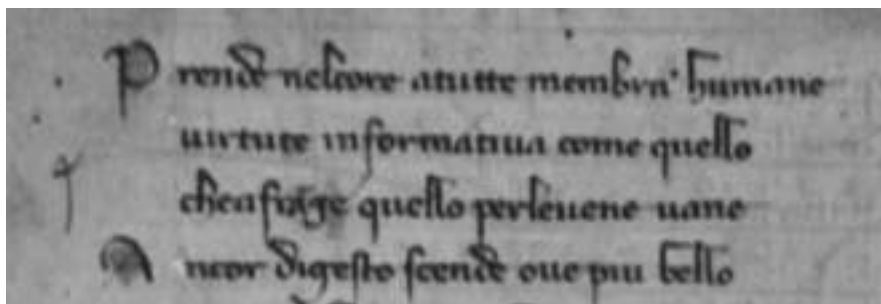 Prende nelcore atutte membra humane
uirtute informatiua come quello
chea frage quello perleuene uane
Ancor digesto scende oue piu bello